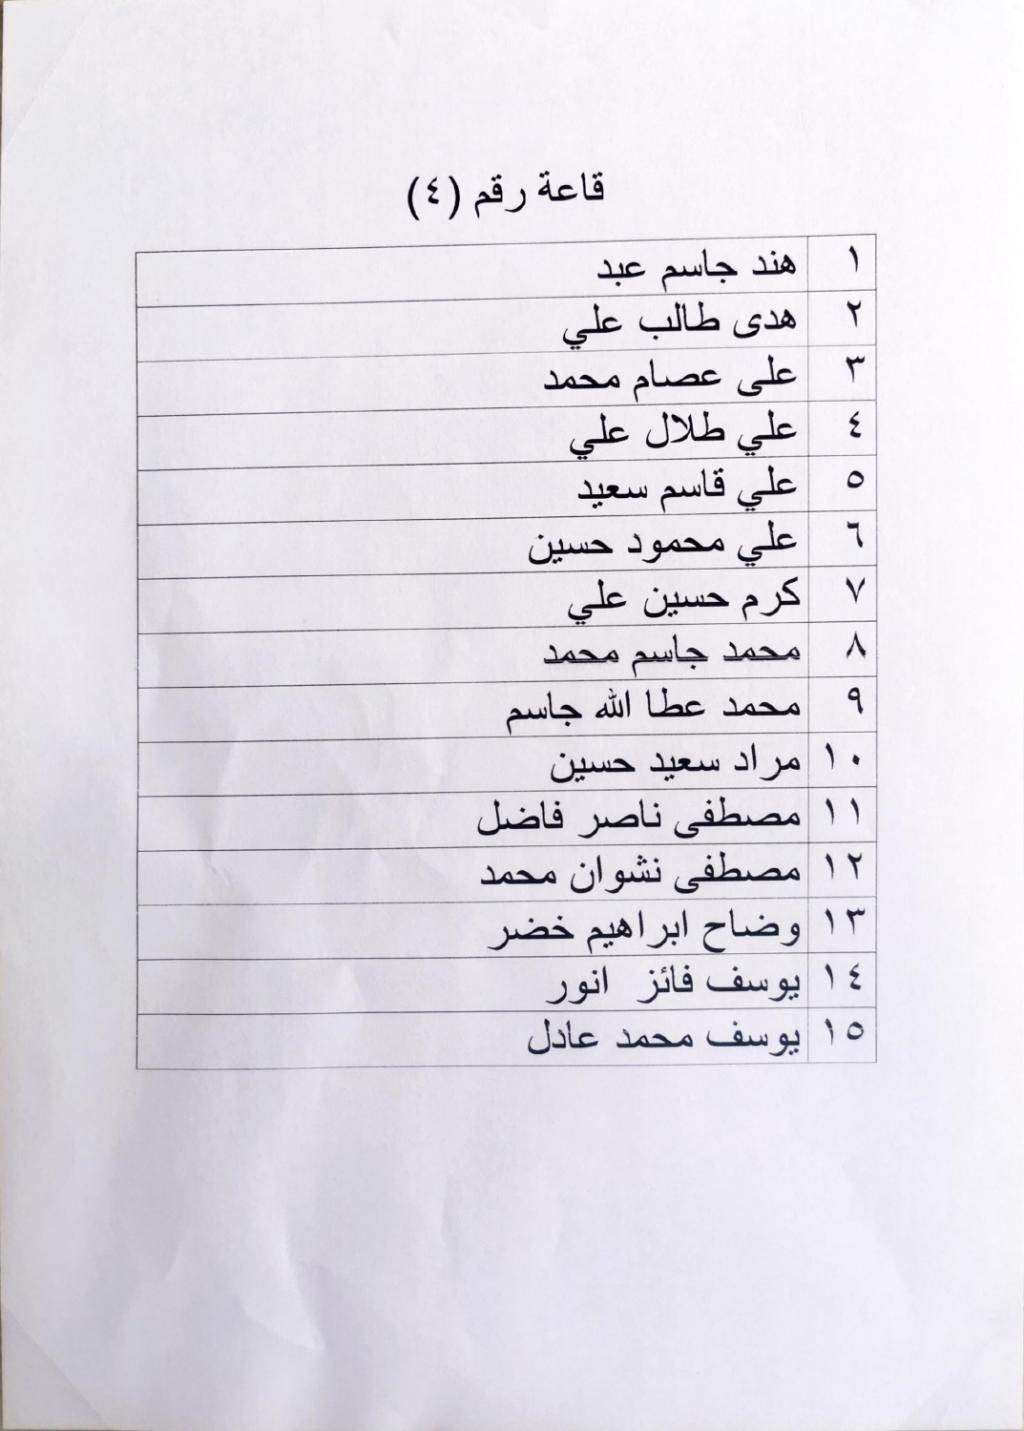 قاعة رقم (٤)
١ هند جاسم عبد
٢ هدى طالب علي
٣ على عصام محمد
٤ علي طلال علي
٥ علي قاسم سعيد
٦ علي محمود حسين
٧ كرم حسين علي
٨ محمد جاسم محمد
٩ محمد عطا الله جاسم
١٠ مراد سعيد حسين
١١ مصطفى ناصر فاضل
١٢ مصطفى نشوان محمد
١٣ وضاح ابراهيم خضر
١٤ يوسف فائز انور
١٥ يوسف محمد عادل